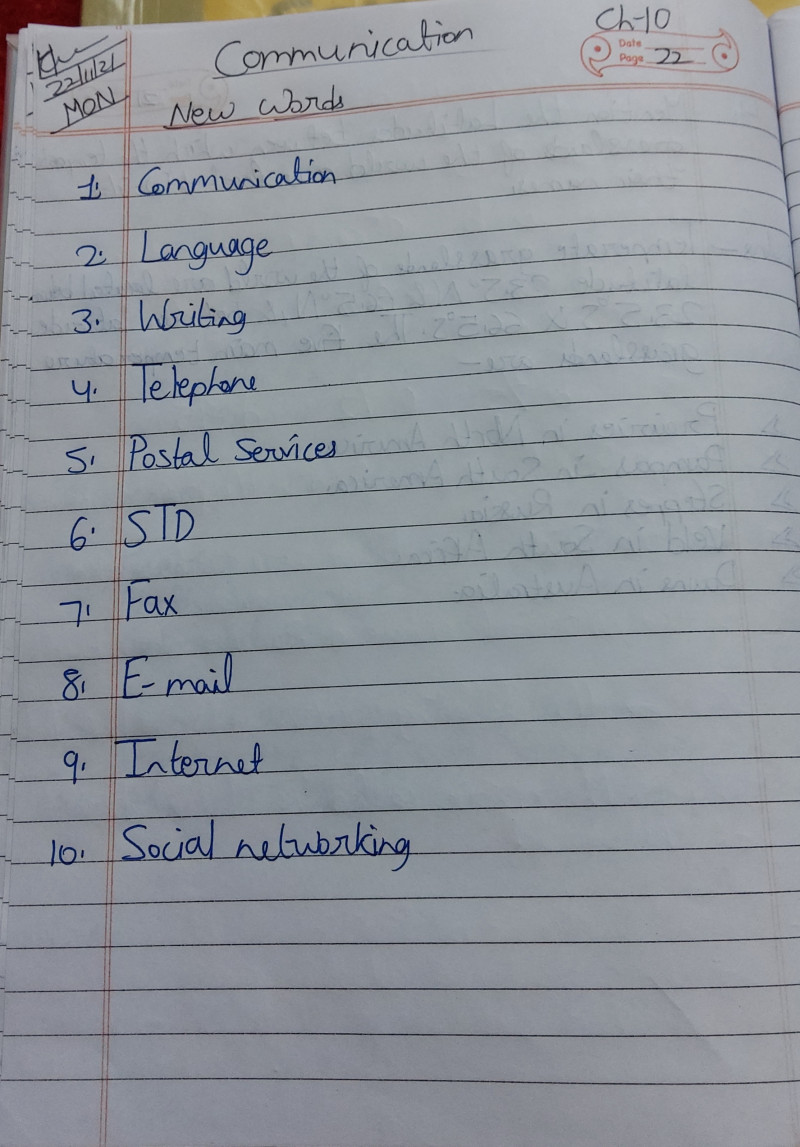 Communication
Ch-10
Date
Page 22
22/11/21
MON
New Words
1. Communication
2. Language
3. Writing
4. Telephone
5. Postal Services
6. STD
7. Fax
8. E-mail
9. Internet
10. Social networking